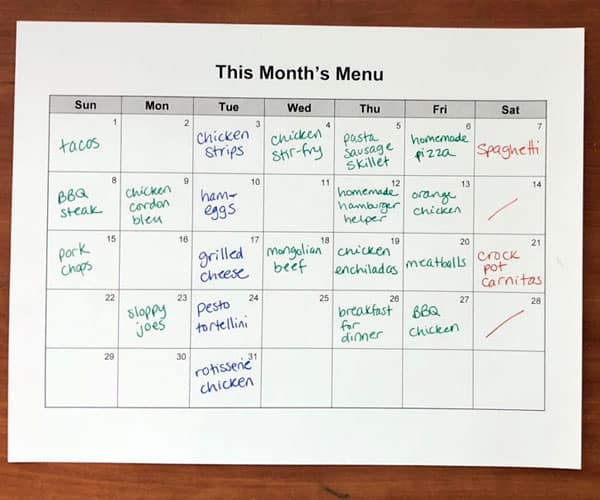 This Month's Menu
Sun Mon Tue Wed Thu Fri Sat
1 2 3 4 5 6 7
tacos
chicken
strips
chicken
stir-fry
pasta
sausage
skillet
homemade
pizza
spaghetti
8 9 10 11 12 13 14
BBQ
steak
chicken
cordon
bleu
ham-
eggs
homemade
hamburger
helper
orange
chicken
15 16 17 18 19 20 21
pork
chops
grilled
cheese
mongolian
beef
chicken
enchiladas
meatballs
crock
pot
carnitas
22 23 24 25 26 27 28
sloppy
joes
pesto
tortellini
breakfast
for
dinner
BBQ
chicken
29 30 31
rotisserie
chicken